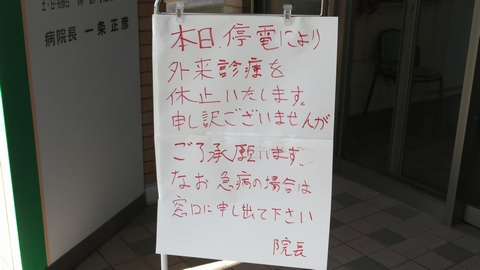 病院長 一条正彦
本日、停電により
外来診療を
休止いたします。
申し訳ございませんが
ご了承願います。
なお急病の場合は
窓口に申し出て下さい
院長